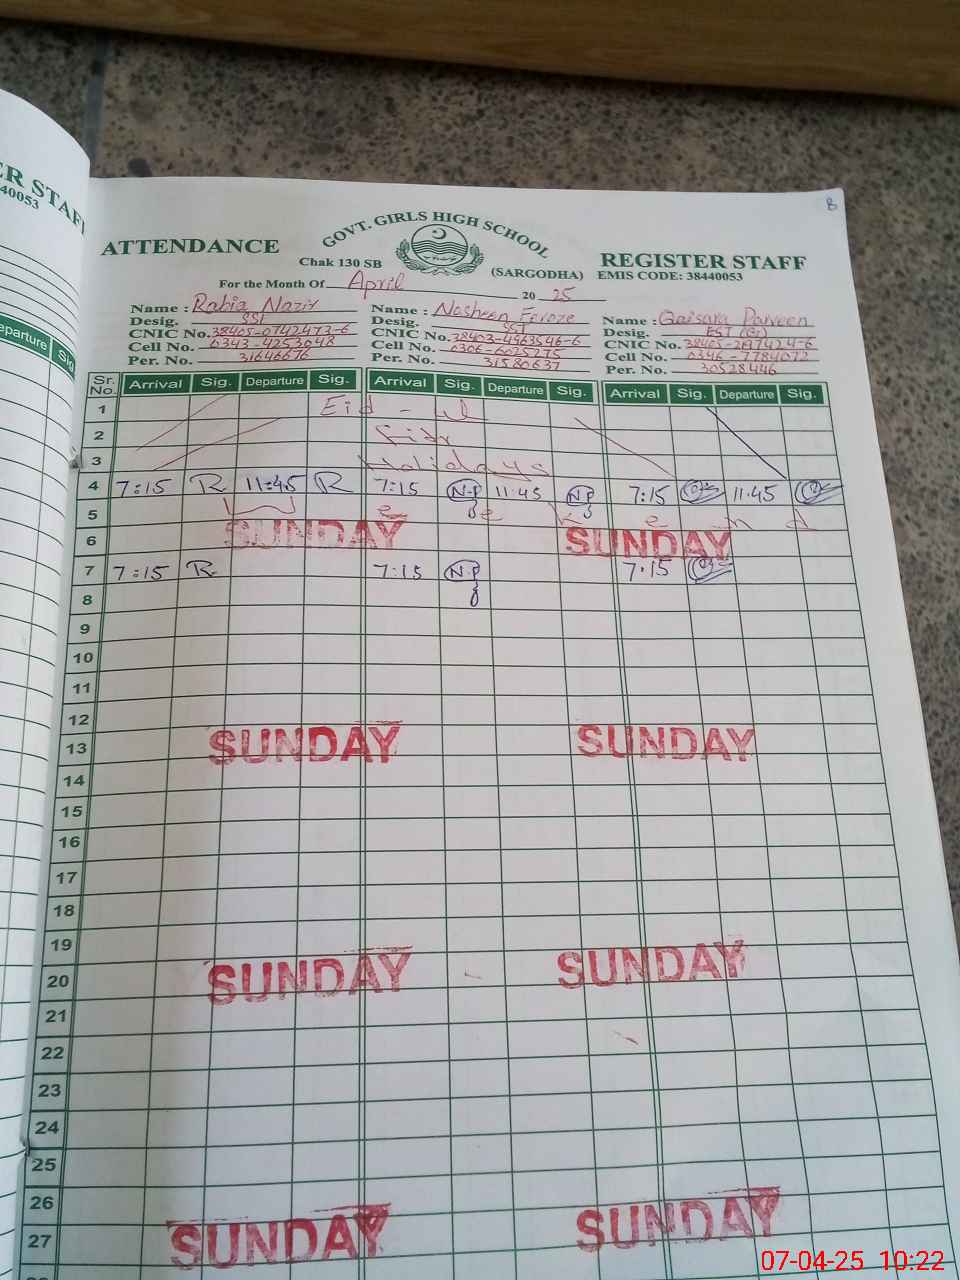 ER STAFF
40053
eparture
Sig
8
GOVT. GIRLS HIGH SCHOOL
ATTENDANCE
REGISTER STAFF
Chak 130 SB
(SARGODHA)
EMIS CODE: 38440053
For the Month Of April 20 25
Name : Rabia Nazir
Desig. SST
CNIC No. 38405-0742473-6
Cell No. 0343-4253048
Per. No. 31646676
Name : Nosheen Feroze
Desig. SST
CNIC No. 38403-4563546-6
Cell No. 0306-6025275
Per. No. 31580637
Name : Qaisara Parveen
Desig. EST (G)
CNIC No. 38405-2A17424-6
Cell No. 0346-7784072
Per. No. 30528446
Sr. No. Arrival Sig. Departure Sig. Arrival Sig. Departure Sig. Arrival Sig. Departure Sig.
1 Eid-ul
2 Fitr
3 Holidays
4 7:15 R 11:45 R 7:15 N.P 11:45 N.P 7:15 11:45
5 W e e k e n d
6 SUNDAY SUNDAY
7 7:15 R 7:15 N.P 7:15
8
9
10
11
12
13 SUNDAY SUNDAY
14
15
16
17
18
19
20 SUNDAY SUNDAY
21
22
23
24
25
26
27 SUNDAY SUNDAY
07-04-25 10:22